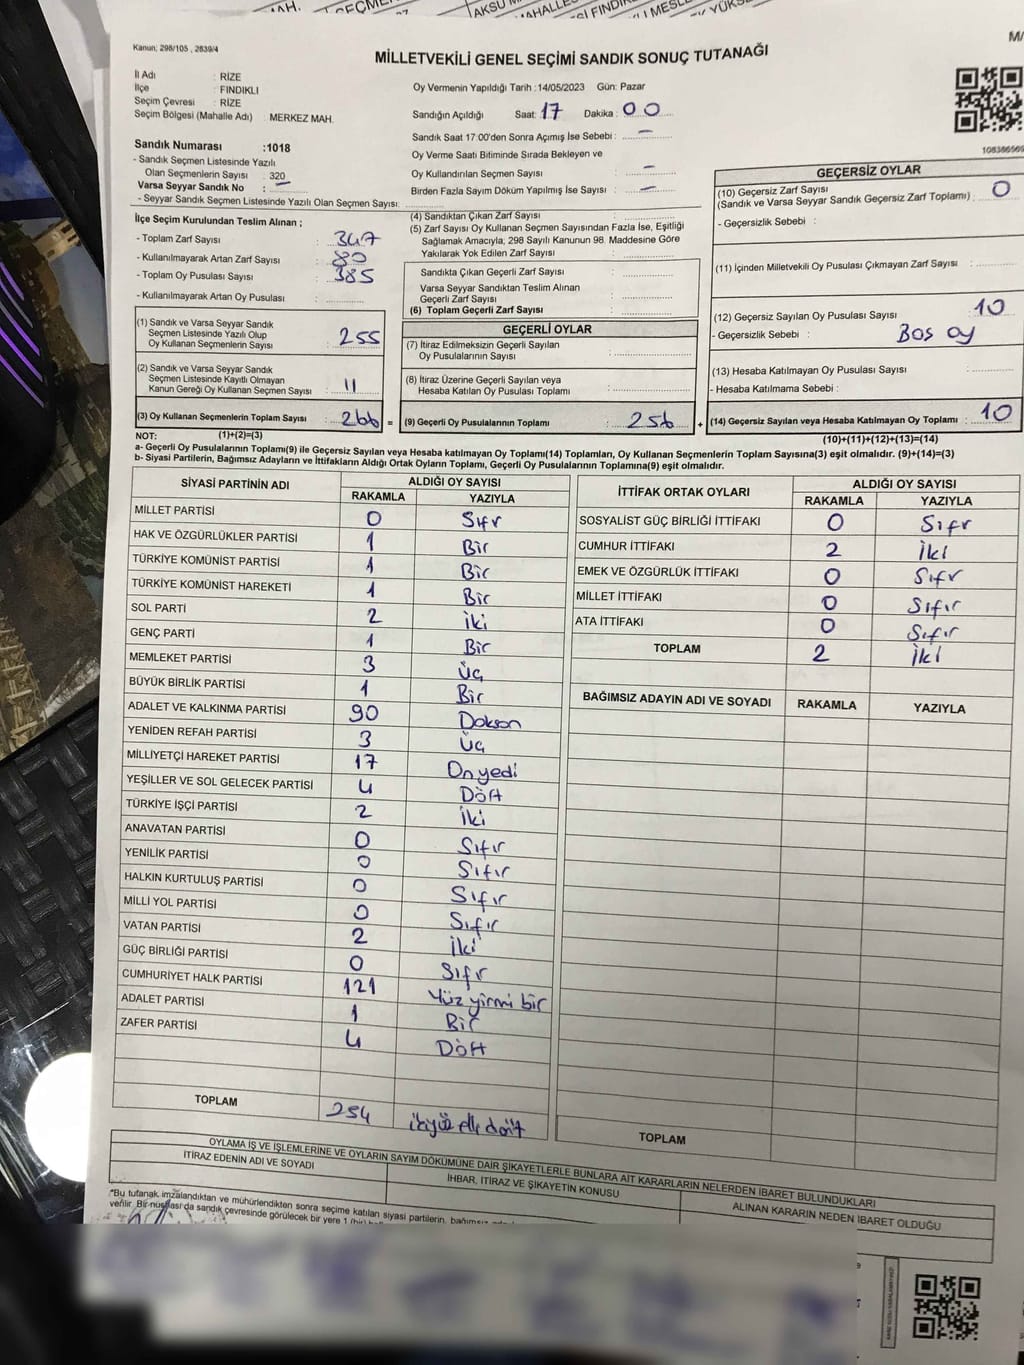 Kanun; 298/105 , 2839/4
MİLLETVEKİLİ GENEL SEÇİMİ SANDIK SONUÇ TUTANAĞI
İl Adı : RİZE
İlçe : FINDIKLI
Seçim Çevresi : RİZE
Seçim Bölgesi (Mahalle Adı) : MERKEZ MAH.
Sandık Numarası :1018
- Sandık Seçmen Listesinde Yazılı
Olan Seçmenlerin Sayısı : 320
Varsa Seyyar Sandık No : —
- Seyyar Sandık Seçmen Listesinde Yazılı Olan Seçmen Sayısı:
Oy Vermenin Yapıldığı Tarih :14/05/2023 Gün: Pazar
Sandığın Açıldığı Saat: 17 Dakika : 00
Sandık Saat 17:00'den Sonra Açımış İse Sebebi : —
Oy Verme Saati Bitiminde Sırada Bekleyen ve
Oy Kullandırılan Seçmen Sayısı : —
Birden Fazla Sayım Döküm Yapılmış İse Sayısı : —
İlçe Seçim Kurulundan Teslim Alınan ;
- Toplam Zarf Sayısı : 347
- Kullanılmayarak Artan Zarf Sayısı : 80
- Toplam Oy Pusulası Sayısı : 385
- Kullanılmayarak Artan Oy Pusulası :
(1) Sandık ve Varsa Seyyar Sandık
Seçmen Listesinde Yazılı Olup
Oy Kullanan Seçmenlerin Sayısı : 255
(2) Sandık ve Varsa Seyyar Sandık
Seçmen Listesinde Kayıtlı Olmayan
Kanun Gereği Oy Kullanan Seçmen Sayısı : 11
(3) Oy Kullanan Seçmenlerin Toplam Sayısı : 266 =
(4) Sandıktan Çıkan Zarf Sayısı :
(5) Zarf Sayısı Oy Kullanan Seçmen Sayısından Fazla İse, Eşitliği
Sağlamak Amacıyla, 298 Sayılı Kanunun 98. Maddesine Göre
Yakılarak Yok Edilen Zarf Sayısı :
Sandıkta Çıkan Geçerli Zarf Sayısı :
Varsa Seyyar Sandıktan Teslim Alınan
Geçerli Zarf Sayısı :
(6) Toplam Geçerli Zarf Sayısı :
GEÇERLİ OYLAR
(7) İtiraz Edilmeksizin Geçerli Sayılan
Oy Pusulalarının Sayısı :
(8) İtiraz Üzerine Geçerli Sayılan veya
Hesaba Katılan Oy Pusulası Toplamı :
(9) Geçerli Oy Pusulalarının Toplamı : 256 +
GEÇERSİZ OYLAR
(10) Geçersiz Zarf Sayısı
(Sandık ve Varsa Seyyar Sandık Geçersiz Zarf Toplamı) : 0
- Geçersizlik Sebebi :
(11) İçinden Milletvekili Oy Pusulası Çıkmayan Zarf Sayısı :
(12) Geçersiz Sayılan Oy Pusulası Sayısı : 10
- Geçersizlik Sebebi : Boş oy
(13) Hesaba Katılmayan Oy Pusulası Sayısı :
- Hesaba Katılmama Sebebi :
(14) Geçersiz Sayılan veya Hesaba Katılmayan Oy Toplamı : 10
NOT: (1)+(2)=(3)
(10)+(11)+(12)+(13)=(14)
a- Geçerli Oy Pusulalarının Toplamı(9) ile Geçersiz Sayılan veya Hesaba Katılmayan Oy Toplamı(14) Toplamları, Oy Kullanan Seçmenlerin Toplam Sayısına(3) eşit olmalıdır. (9)+(14)=(3)
b- Siyasi Partilerin, Bağımsız Adayların ve İttifakların Aldığı Ortak Oyların Toplamı, Geçerli Oy Pusulalarının Toplamına(9) eşit olmalıdır.
SİYASİ PARTİNİN ADI ALDIĞI OY SAYISI
RAKAMLA YAZIYLA
MİLLET PARTİSİ 0 Sıfr
HAK VE ÖZGÜRLÜKLER PARTİSİ 1 Bir
TÜRKİYE KOMÜNİST PARTİSİ 1 Bir
TÜRKİYE KOMÜNİST HAREKETİ 1 Bir
SOL PARTİ 2 İki
GENÇ PARTİ 1 Bir
MEMLEKET PARTİSİ 3 Üç
BÜYÜK BİRLİK PARTİSİ 1 Bir
ADALET VE KALKINMA PARTİSİ 90 Doksan
YENİDEN REFAH PARTİSİ 3 Üç
MİLLİYETÇİ HAREKET PARTİSİ 17 Onyedi
YEŞİLLER VE SOL GELECEK PARTİSİ 4 Dört
TÜRKİYE İŞÇİ PARTİSİ 2 İki
ANAVATAN PARTİSİ 0 Sıfır
YENİLİK PARTİSİ 0 Sıfır
HALKIN KURTULUŞ PARTİSİ 0 Sıfır
MİLLİ YOL PARTİSİ 0 Sıfır
VATAN PARTİSİ 2 İki
GÜÇ BİRLİĞİ PARTİSİ 0 Sıfr
CUMHURİYET HALK PARTİSİ 121 Yüz yirmi bir
ADALET PARTİSİ 1 Bir
ZAFER PARTİSİ 4 Dört
TOPLAM 254 ikiyüz elli dört
İTTİFAK ORTAK OYLARI ALDIĞI OY SAYISI
RAKAMLA YAZIYLA
SOSYALİST GÜÇ BİRLİĞİ İTTİFAKI 0 Sıfr
CUMHUR İTTİFAKI 2 İki
EMEK VE ÖZGÜRLÜK İTTİFAKI 0 Sıfr
MİLLET İTTİFAKI 0 Sıfır
ATA İTTİFAKI 0 Sıfır
TOPLAM 2 İki
BAĞIMSIZ ADAYIN ADI VE SOYADI RAKAMLA YAZIYLA
TOPLAM
OYLAMA İŞ VE İŞLEMLERİNE VE OYLARIN SAYIM DÖKÜMÜNE DAİR ŞİKAYETLERLE BUNLARA AİT KARARLARIN NELERDEN İBARET BULUNDUKLARI
İTİRAZ EDENİN ADI VE SOYADI İHBAR, İTİRAZ VE ŞİKAYETİN KONUSU ALINAN KARARIN NEDEN İBARET OLDUĞU
*Bu tutanak imzalandıktan ve mühürlendikten sonra seçime katılan siyasi partilerin, bağımsız
verilir. Bir nüshası da sandık çevresinde görülecek bir yere 1 (bir)